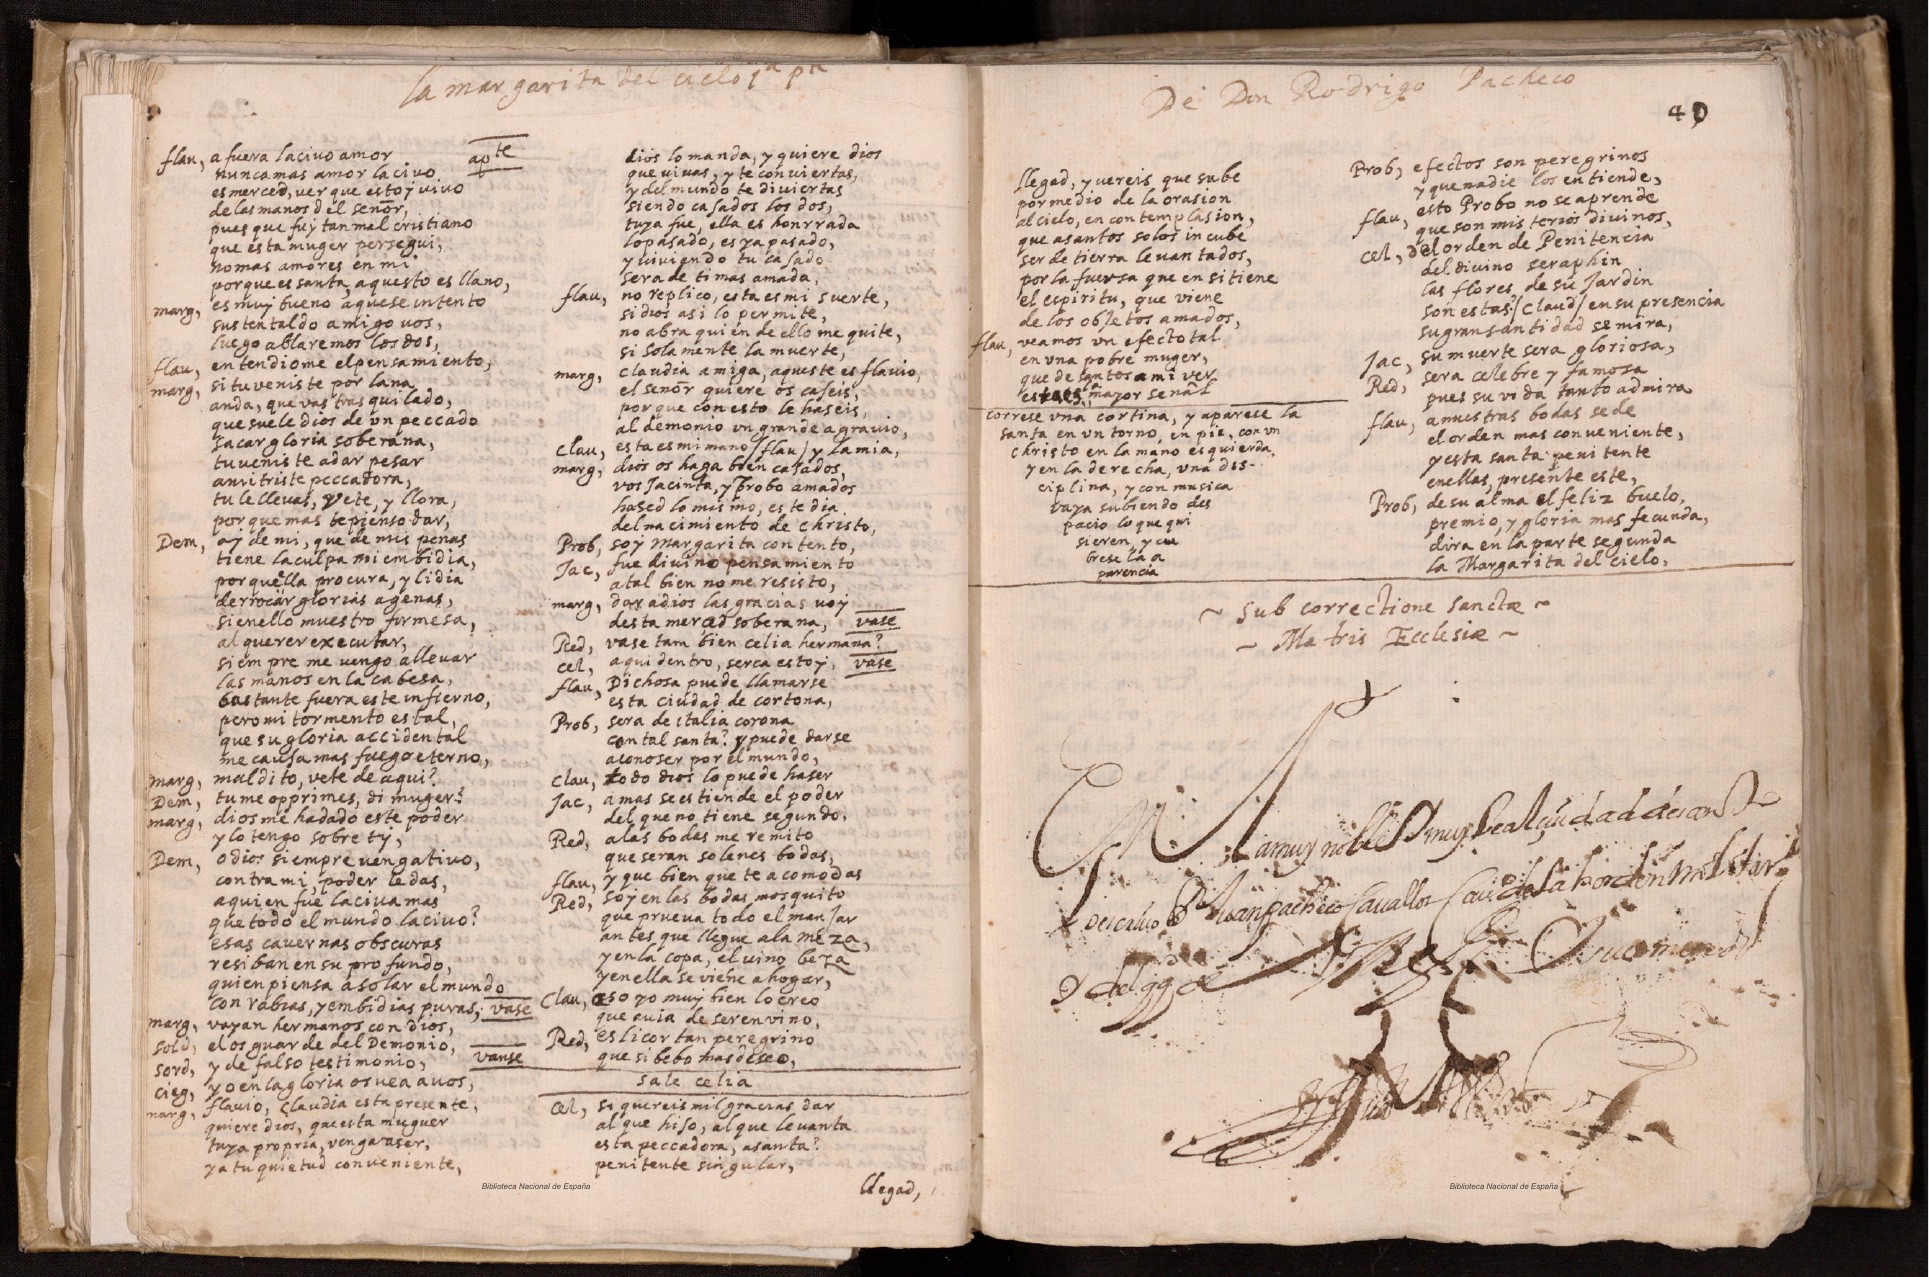 la margarita del cielo 1ª pte
flau, a fuera laciuo amor apte
nunca mas amor laciuo
es merced, ver que estoy vivo
de las manos del señor,
pues que fuy tan mal cristiano
que esta muger persegui,
no mas amores en mi
porque es santa, aquesto es llano,
marg, es muy bueno aquese intento
sustentaldo amigo uos,
luego ablaremos los dos,
flau, entendiome el pensamiento,
marg, si tu veniste por lana
anda, que vas trasquilado,
que suele dios de un peccado
sacar gloria soberana,
tu veniste a dar pesar
a mi triste peccadora,
tu le lleuas, vete, y llora,
porque mas te pienso dar,
Dem, ay de mi, que de mis penas
tiene la culpa mi embidia,
porquella procura, y lidia
derrocar glorias agenas,
si en ello muestro firmesa,
al querer executar,
siempre me uengo a lleuar
las manos en la cabesa,
bastante fuera este infierno,
pero mi tormento es tal,
que su gloria accidental
me causa mas fuego eterno,
marg, maldito, vete de aqui?
Dem, tu me opprimes, di muger?
marg, dios me ha dado este poder
y lo tengo sobre ty,
Dem, o dios siempre uengatiuo,
contra mi, poder le das,
a quien fue laciua mas
que todo el mundo laciuo?
esas cauernas obscuras
resiban en su profundo,
quien piensa asolar el mundo
con rabias, y embidias puras, vase
marg, vayan hermanos con dios,
sold, el os guarde del Demonio,
sord, y de falso testimonio, vanse
cieg, yo en la gloria os uea a uos,
marg, flauio, Claudia esta presente,
quiere dios, que esta muguer
tuya propria, venga a ser,
ya tu quietud conueniente,
dios lo manda, y quiere dios
que uiuas, y te conuiertas,
y del mundo te diuiertas
siendo casados los dos,
tuya fue, ella es honrrada
lo pasado, es ya pasado,
y uiuiendo tu casado
sera de ti mas amada,
flau, no replico, esta es mi suerte,
si dios asi lo permite,
no abra quien de ello me quite,
si solamente la muerte,
marg, Claudia amiga, aqueste es flauio,
el señor quiere os caseis,
porque con esto le haseis,
al demonio un grande agrauio,
clau, esta es mi mano / flau / y la mia,
marg, dios os haga bien casados,
vos Jacinta, y Probo amados
hased lo mismo, este dia
del nacimiento de christo,
Prob, soy Margarita contento,
Jac, fue diuino pensamiento
a tal bien no me resisto,
marg, dar a dios las gracias uoy
desta merced soberana, vase
Red, vase tambien celia hermana?
cel, aqui dentro, serca estoy, vase
flau, Dichosa puede llamarse
esta ciudad de cortona,
Prob, sera de italia corona
con tal santa? y puede darse
a conoser por el mundo,
Clau, todo dios lo puede haser
Jac, a mas se estiende el poder
del que no tiene segundo,
Red, a las bodas me remito
que seran solenes bodas,
flau, y que bien que te acomodas
Red, soy en las bodas mosquito
que prueua todo el manJar
antes que llegue a la meza,
y en la copa, el uino beza
y en ella se viene a hogar,
Clau, eso yo muy bien lo creo
que auia de ser en vino,
Red, es licor tan peregrino
que si bebo mas deseo,
sale celia
cel, si quereis mil gracias dar
al que hiso, al que leuanta
esta peccadora, a santa?
penitente singular,
llegad,
Biblioteca Nacional de España
De Don Rodrigo Pacheco
40
llegad, y uereis que sube
por medio de la orasion
al cielo, en contemplasion,
que a santos solos incube
ser de tierra leuantados,
por la fuersa que en si tiene
el espiritu, que viene
de los obJetos amados,
flau, veamos un efecto tal
en una pobre muger,
que de santos a mi ver
mayor señal
corrèse una cortina, y aparese la
santa en un torno, en pie, con un
christo en la mano esquierda,
y en la derecha, una dis-
ciplina, y con musica
vaya subiendo des
pacio lo que qui
sieren, y cu
brese la a
parencia
Prob, efectos son peregrinos
y que nadie los entiende,
flau, esto Probo no se aprende
que son misterios diuinos,
cel, del orden de Penitencia
del diuino seraphin
las flores de su Jardin
son estas: / Claud / en su presencia
su gran santidad se mira,
Jac, su muerte sera gloriosa,
Red, sera celebre y famosa
pues su vida tanto admira
flau, a nuestras bodas se de
el orden mas conueniente,
y esta santa penitente
en ellas, presente este,
Prob, de su alma el feliz buelo,
premio, y gloria mas fecunda,
dira en la parte segunda
la Margarita del cielo,
~ Sub correctione Sanctæ ~
~ Matris Ecclesiæ ~
la muy noble y muy leal ciudad de
Juan pacheco Cauallo de la horden militar
Biblioteca Nacional de España